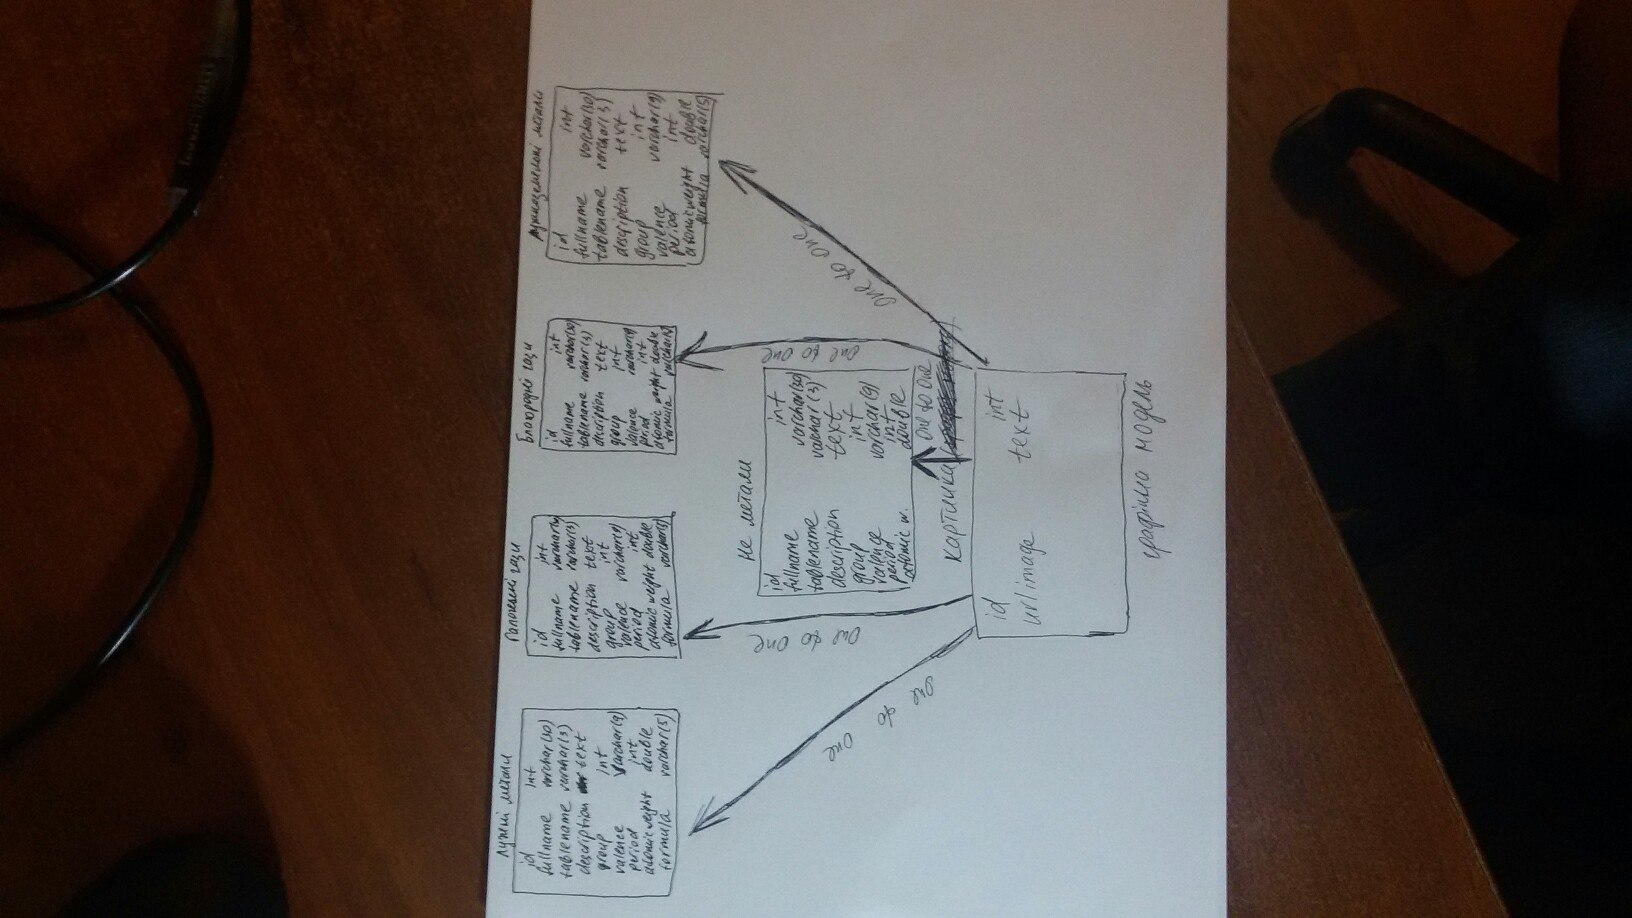 Лужні метали
id int
fullname varchar(30)
tablename varchar(3)
description text
group int
valence varchar(9)
period int
atomic weight double
formula varchar(5)
гази
id int
fullname
tablename varchar(3)
description text
group int
valence varchar(9)
period int
atomic weight double
formula varchar(5)
Благородні гази
id int
fullname varchar(30)
tablename varchar(3)
description text
group int
valence varchar(9)
period int
atomic weight double
formula varchar(5)
Лужноземельні метали
id int
fullname varchar(30)
tablename varchar(3)
description text
group int
valence varchar(9)
period int
atomic weight double
formula varchar(5)
не метали
id int
fullname varchar(30)
tablename varchar(3)
description text
group int
valence varchar(9)
period int
atomic w. double
one to one
one to one
one to one
one to one
one to one
картинка
id int
urlimage text
графічна модель